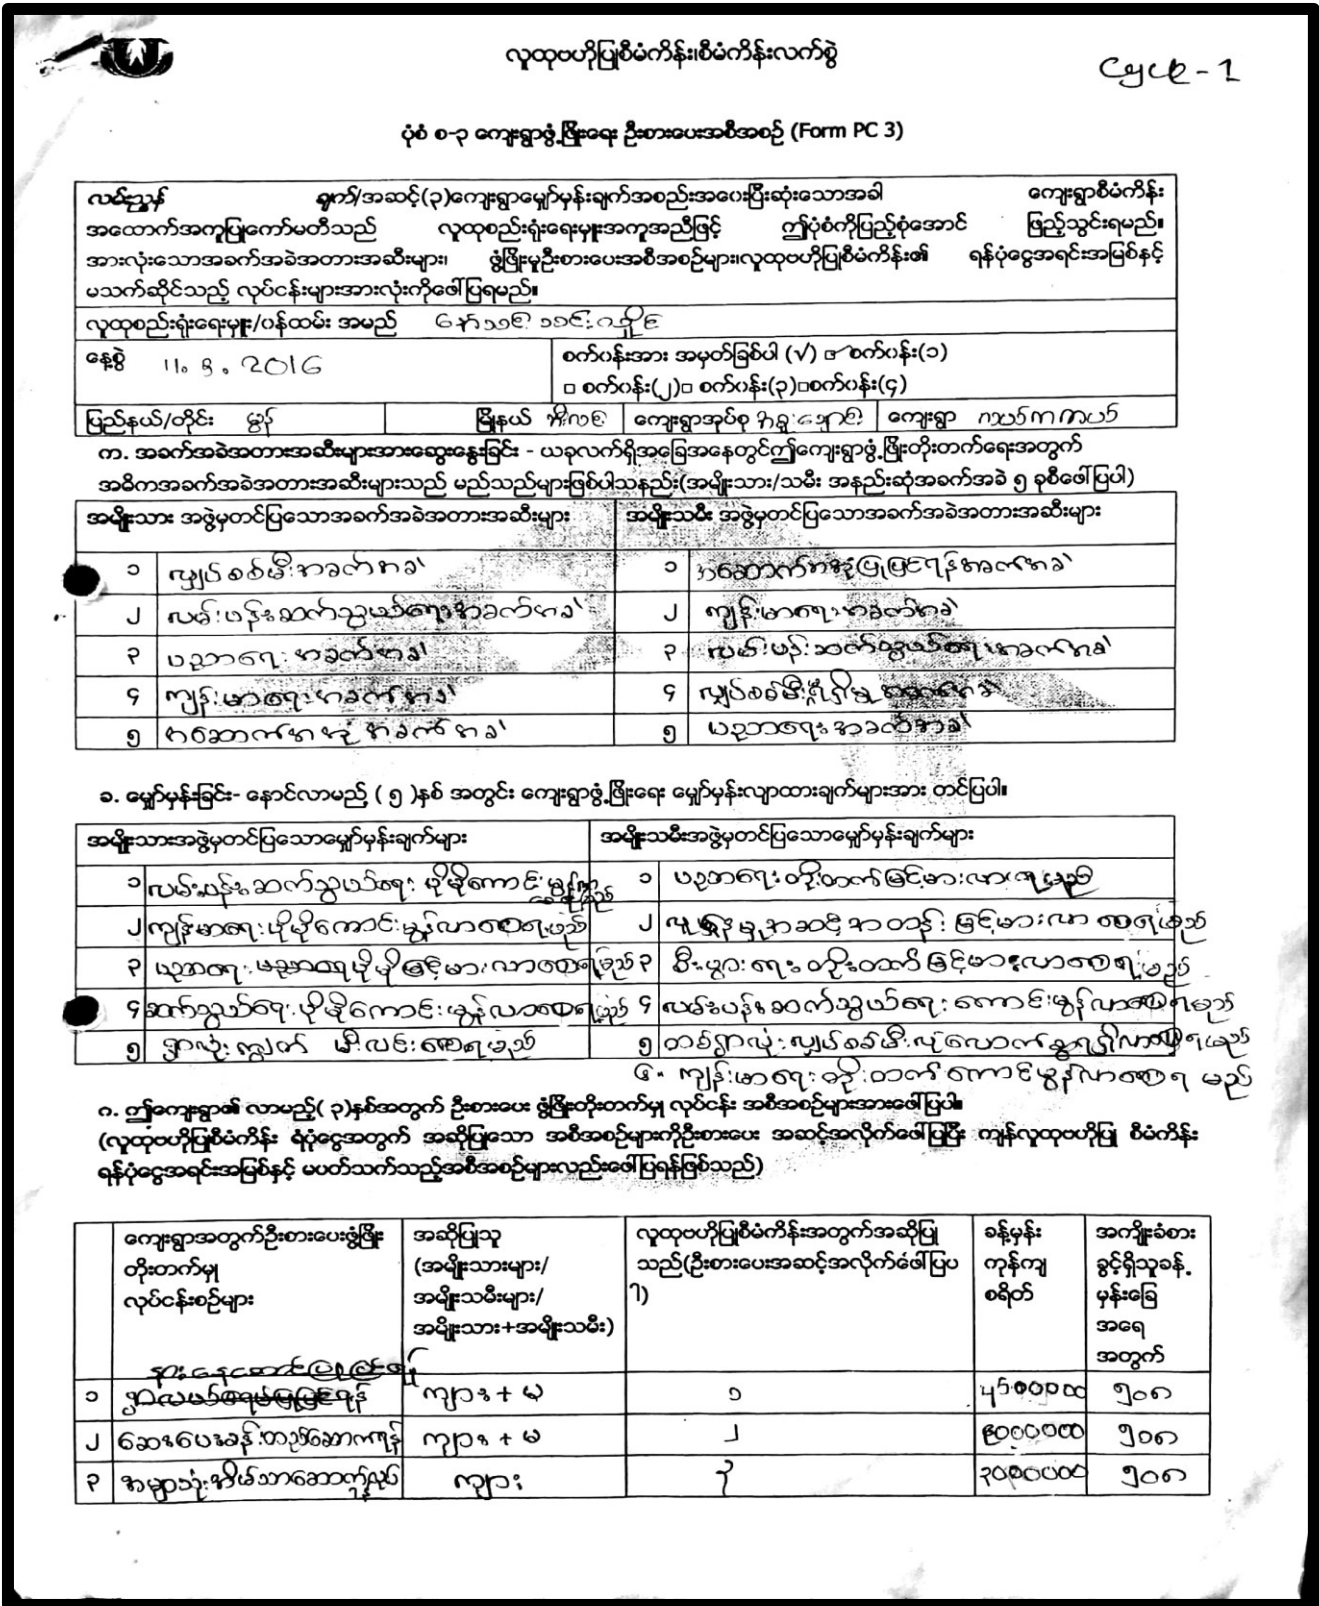 လူထုဗဟိုပြုစီမံကိန်း၊စီမံကိန်းလက်စွဲ
Cycle - 1
ပုံစံ စ-၃ ကျေးရွာဖွံ့ဖြိုးရေး ဦးစားပေးအစီအစဉ် (Form PC 3)
လမ်းညွှန် ချက်/အဆင့်(၃)ကျေးရွာမျှော်မှန်းချက်အစည်းအဝေးပြီးဆုံးသောအခါ ကျေးရွာစီမံကိန်း
အထောက်အကူပြုကော်မတီသည် လူထုစည်းရုံးရေးမှူးအကူအညီဖြင့် ဤပုံစံကိုပြည့်စုံအောင် ဖြည့်သွင်းရမည်။
အားလုံးသောအခက်အခဲအတားအဆီးများ၊ ဖွံ့ဖြိုးမှုဦးစားပေးအစီအစဉ်များ၊လူထုဗဟိုပြုစီမံကိန်း၏ ရန်ပုံငွေအရင်းအမြစ်နှင့်
မသက်ဆိုင်သည့် လုပ်ငန်းများအားလုံးကိုဖေါ်ပြရမည်။
လူထုစည်းရုံးရေးမှူး/ဝန်ထမ်း အမည်
နေ့စွဲ 11. 3. 2016 စက်ဝန်းအား အမှတ်ခြစ်ပါ (√) ☑ စက်ဝန်း(၁)
□ စက်ဝန်း(၂)□ စက်ဝန်း(၃)□စက်ဝန်း(၄)
ပြည်နယ်/တိုင်း မွန် မြို့နယ် ဘီးလင်း ကျေးရွာအုပ်စု ကျေးရွာ
က. အခက်အခဲအတားအဆီးများအားဆွေးနွေးခြင်း - ယခုလက်ရှိအခြေအနေတွင်ဤကျေးရွာဖွံ့ဖြိုးတိုးတက်ရေးအတွက်
အဓိကအခက်အခဲအတားအဆီးများသည် မည်သည်များဖြစ်ပါသနည်း(အမျိုးသား/သမီး အနည်းဆုံအခက်အခဲ ၅ ခုစီဖေါ်ပြပါ)
အမျိုးသား အဖွဲ့မှတင်ပြသောအခက်အခဲအတားအဆီးများ အမျိုးသမီး အဖွဲ့မှတင်ပြသောအခက်အခဲအတားအဆီးများ
၁ လျှပ်စစ်မီးအခက်အခဲ ၁ အဆောက်အအုံပြုပြင်ရန်အခက်အခဲ
၂ လမ်းပန်းဆက်သွယ်ရေးအခက်အခဲ ၂ ကျန်းမာရေးအခက်အခဲ
၃ ပညာရေးအခက်အခဲ ၃ လမ်းပန်းဆက်သွယ်ရေးအခက်အခဲ
၄ ကျန်းမာရေးအခက်အခဲ ၄ လျှပ်စစ်မီးရရှိမှုအခက်အခဲ
၅ အဆောက်အအုံအခက်အခဲ ၅ ပညာရေးအခက်အခဲ
ခ. မျှော်မှန်းခြင်း- နောင်လာမည့် ( ၅ )နှစ် အတွင်း ကျေးရွာဖွံ့ဖြိုးရေး မျှော်မှန်းလျာထားချက်များအား တင်ပြပါ။
အမျိုးသားအဖွဲ့မှတင်ပြသောမျှော်မှန်းချက်များ အမျိုးသမီးအဖွဲ့မှတင်ပြသောမျှော်မှန်းချက်များ
၁ လမ်းပန်းဆက်သွယ်ရေး ပိုမိုကောင်းမွန်လာစေရမည် ၁ ပညာရေးတိုးတက်မြင့်မားလာရမည်
၂ ကျန်းမာရေးပိုမိုကောင်းမွန်လာစေရမည် ၂ လူနေမှုအဆင့်အတန်းမြင့်မားလာစေရမည်
၃ ပညာရေး ပိုမိုမြင့်မားလာစေရမည် ၃ စီးပွားရေးတိုးတတ်မြင့်မားလာစေရမည်
၄ ဆက်သွယ်ရေးပိုမိုကောင်းမွန်လာစေရမည် ၄ လမ်းပန်းဆက်သွယ်ရေးကောင်းမွန်လာစေရမည်
၅ ရွာလုံးကျွတ် မီးလင်းစေရမည် ၅ တစ်ရွာလုံးလျှပ်စစ်မီးလုံလောက်စွာရရှိလာစေရမည်
၆. ကျန်းမာရေးတိုးတက်ကောင်းမွန်လာစေရ မည်
ဂ. ဤကျေးရွာ၏ လာမည့်( ၃)နှစ်အတွက် ဦးစားပေး ဖွံ့ဖြိုးတိုးတက်မှု လုပ်ငန်း အစီအစဉ်များအားဖေါ်ပြပါ။
(လူထုဗဟိုပြုစီမံကိန်း ရံပုံငွေအတွက် အဆိုပြုသော အစီအစဉ်များကိုဦးစားပေး အဆင့်အလိုက်ဖေါ်ပြပြီး ကျန်လူထုဗဟိုပြု စီမံကိန်း
ရန်ပုံငွေအရင်းအမြစ်နှင့် မပတ်သက်သည့်အစီအစဉ်များလည်းဖေါ်ပြရန်ဖြစ်သည်)
ကျေးရွာအတွက်ဦးစားပေးဖွံ့ဖြိုး အဆိုပြုသူ လူထုဗဟိုပြုစီမံကိန်းအတွက်အဆိုပြု ခန့်မှန်း အကျိုးခံစား
တိုးတက်မှု (အမျိုးသားများ/ သည်(ဦးစားပေးအဆင့်အလိုက်ဖေါ်ပြပ ကုန်ကျ ခွင့်ရှိသူခန့်
လုပ်ငန်းစဉ်များ အမျိုးသမီးများ/ ါ) စရိတ် မှန်းခြေ
အမျိုးသား+အမျိုးသမီး) အရေ
အတွက်
၁ ကျား + မ ၁ ၅၀၈
၂ ဆေးပေးခန်းတည်ဆောက်ရန် ကျား + မ ၂ ၅၀၈
၃ အများသုံးအိမ်သာဆောက်လုပ်ရန် ကျား ၃ ၅၀၈